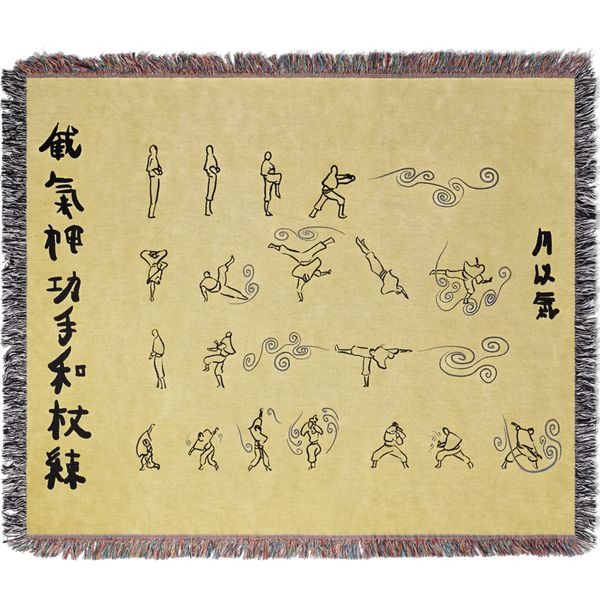 月以氣
截氣神功手和杖練